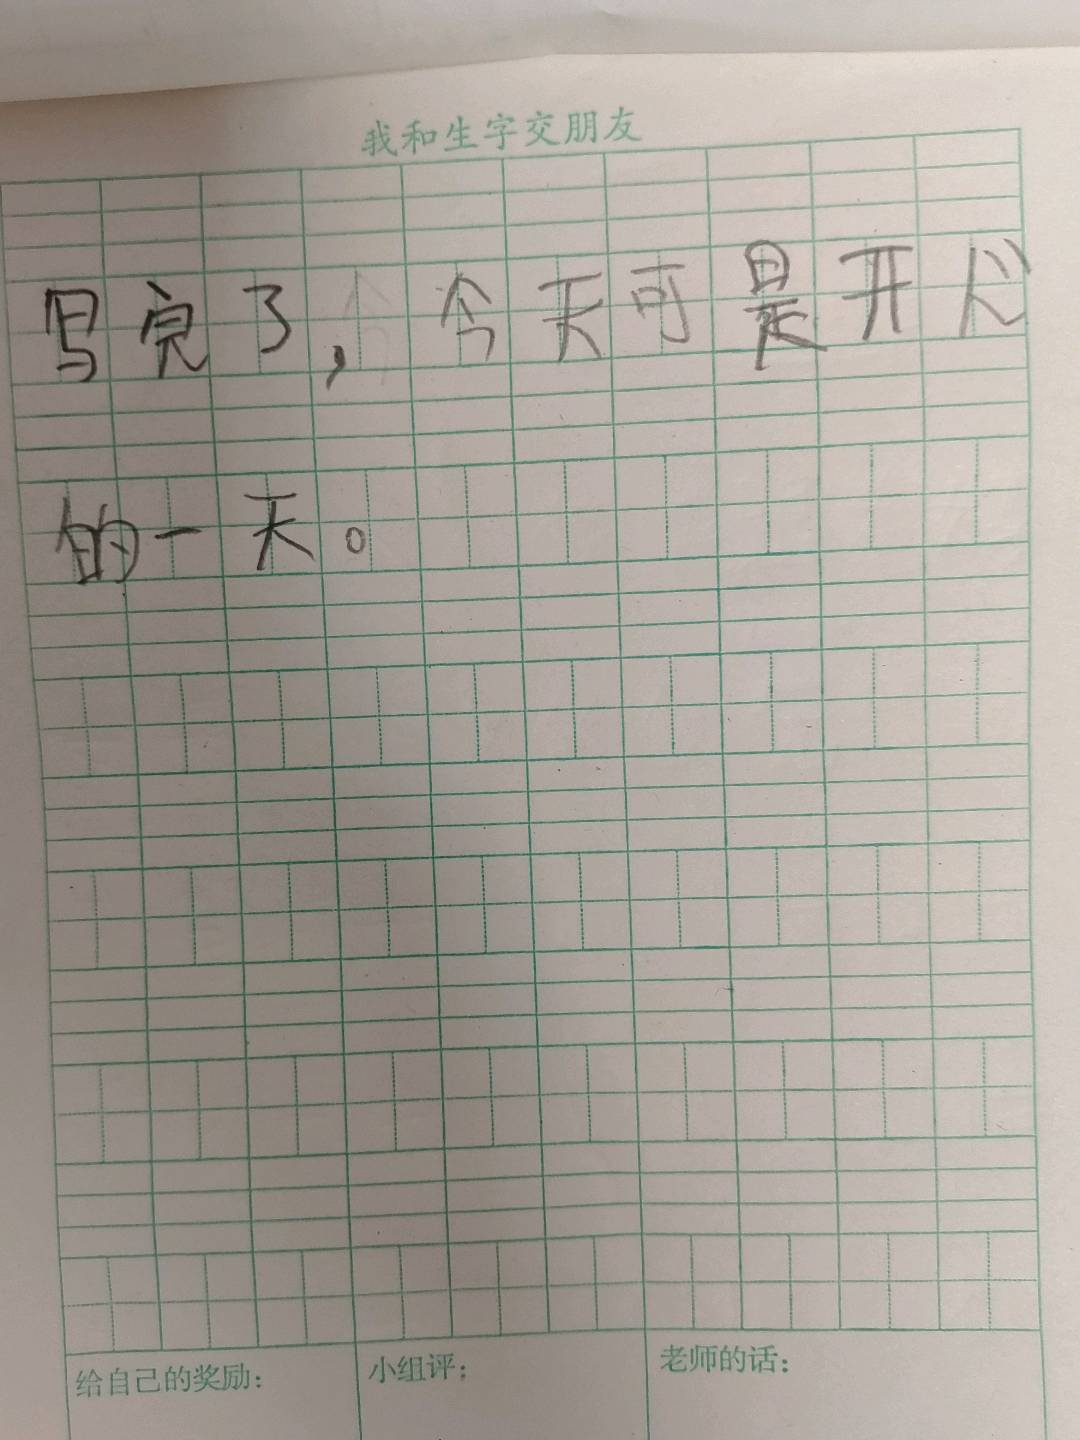 我和生字交朋友
写完了，今天可是开心
的一天。
给自己的奖励：
小组评：
老师的话：